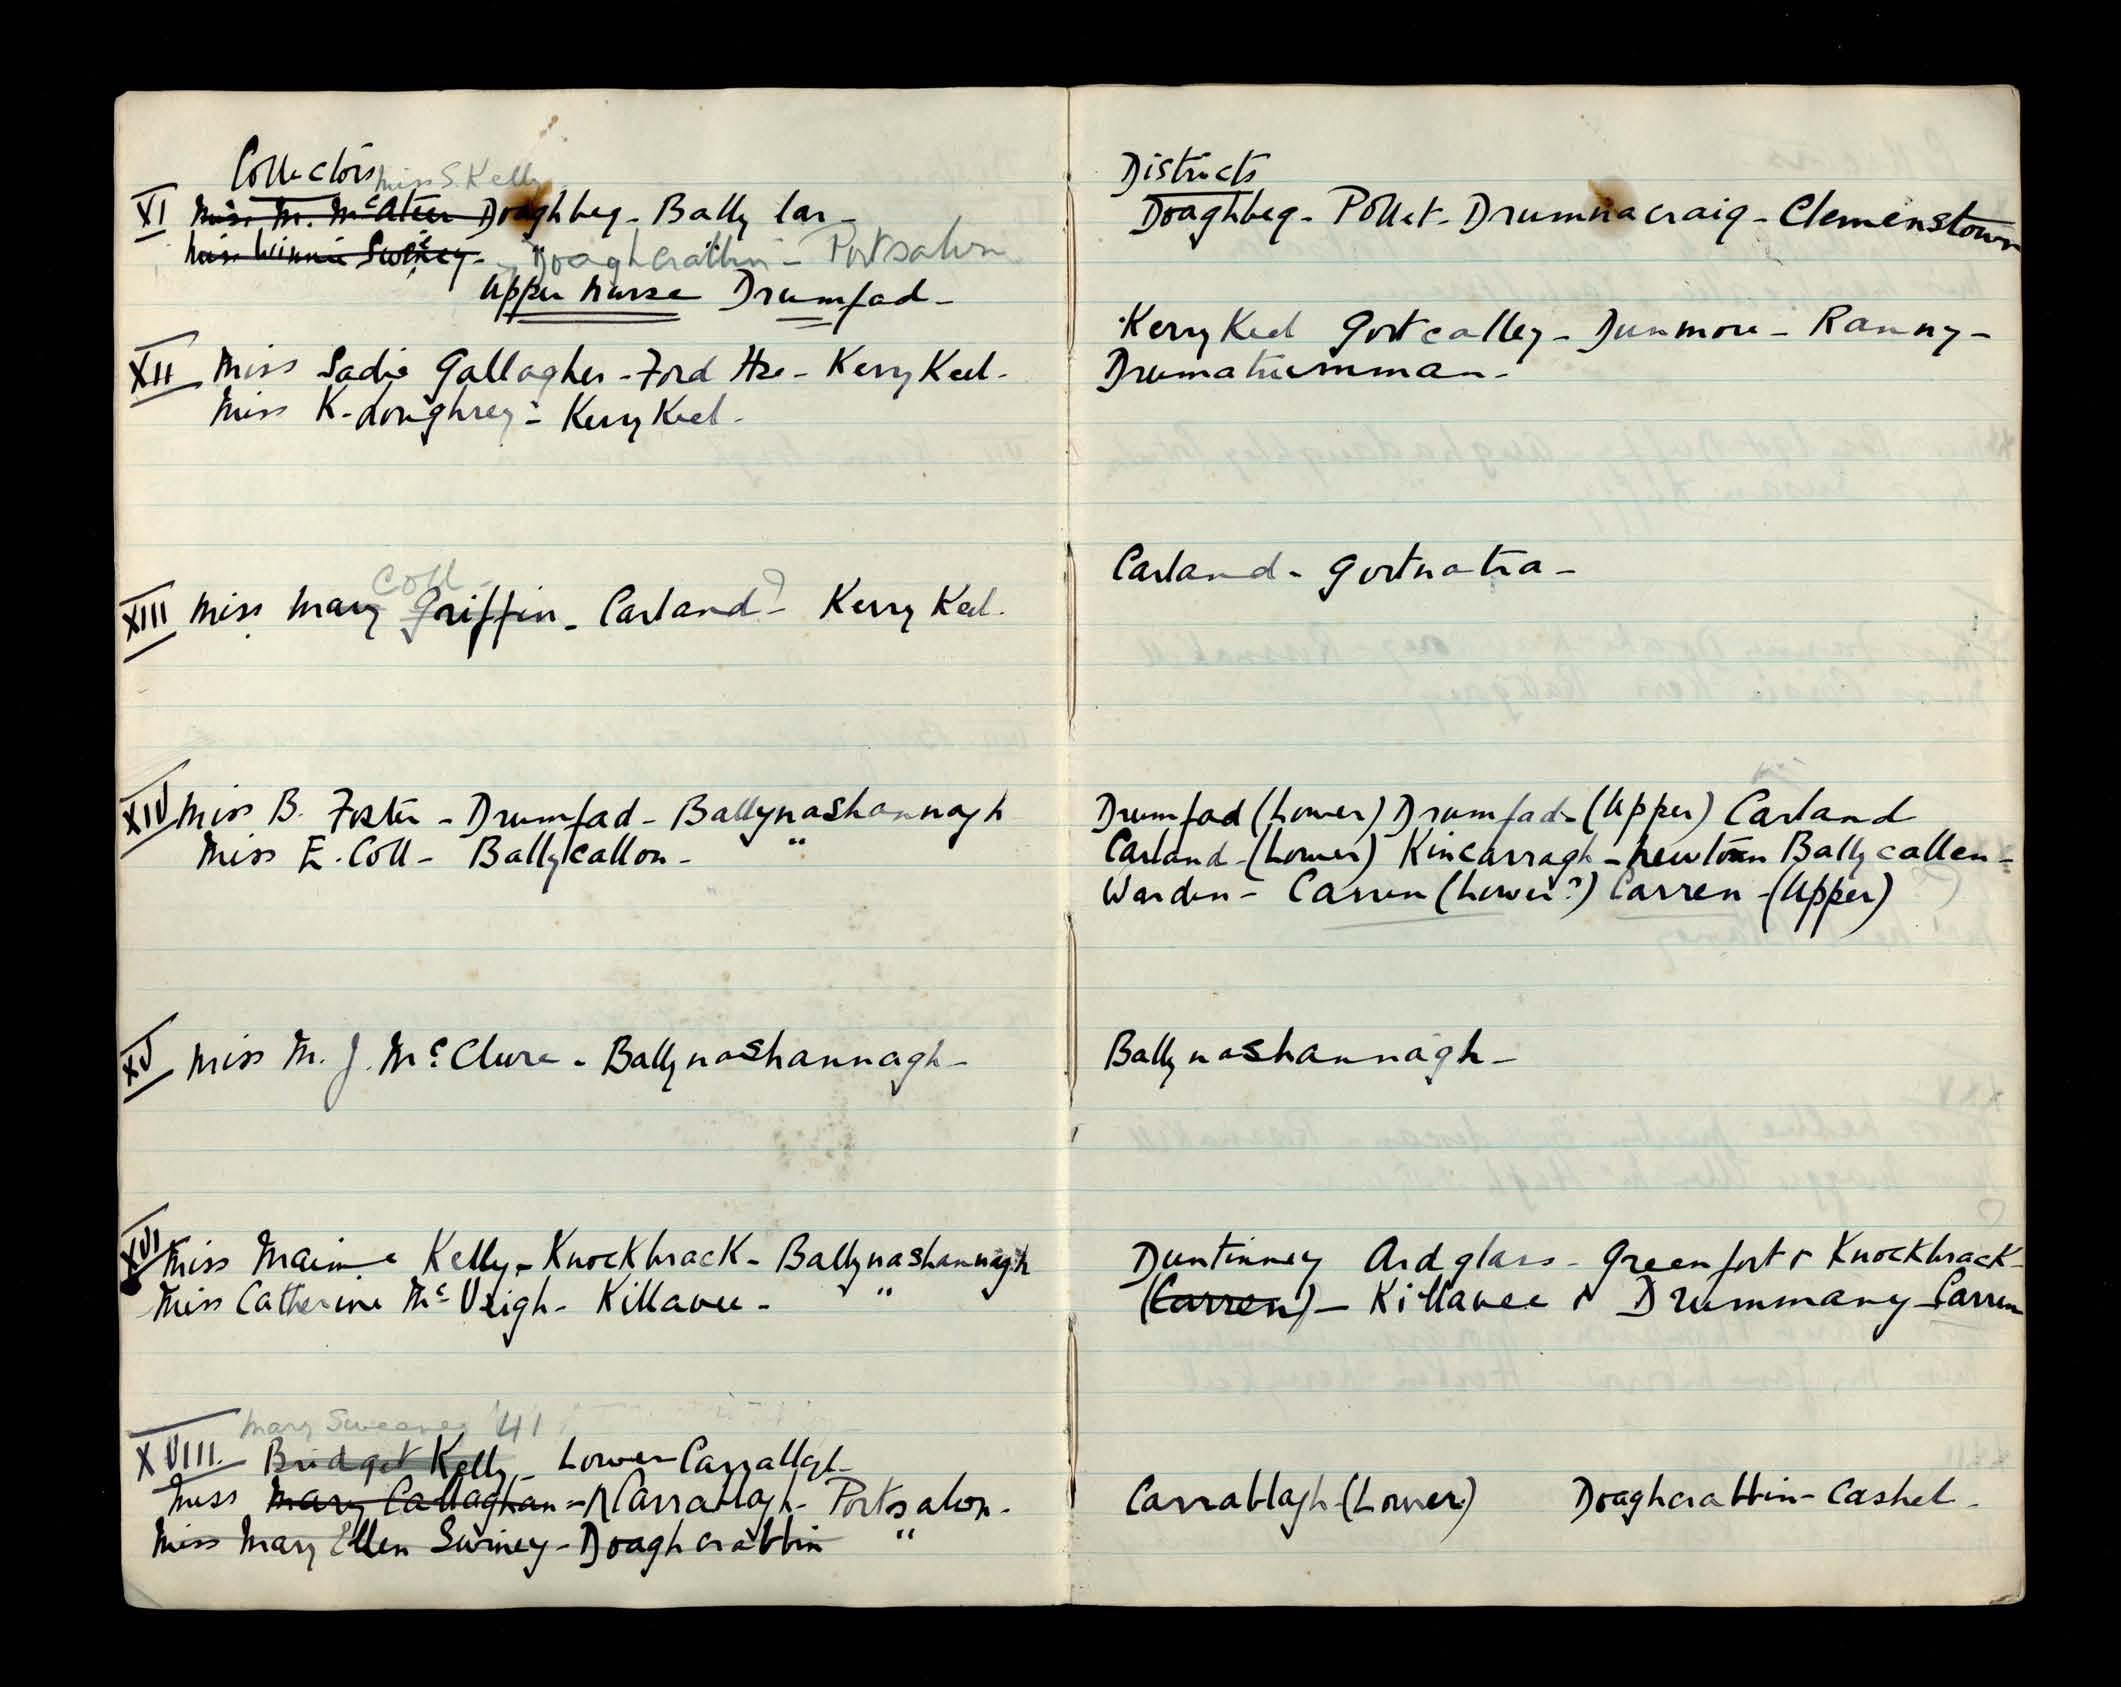 Collectors
Miss S. Kelly
XI Miss M. McAteer Doaghbeg - Bally lar -
Miss Winnie Swiney - " Doaghcrabbin - Portsalon
Upper Nurse Drumfad -
XII Miss Sadie Gallagher - Ford Hse - Kerry Keel -
Miss K. Loughrey - Kerry Keel -
Coll -
XIII Miss Mary Griffin - Carland? - Kerry Keel.
XIV Miss B. Foster - Drumfad - Ballynashannagh
Miss E. Coll - Ballycallon - "
XV Miss M. J. McClure - Ballynashannagh -
XVI Miss Maimie Kelly - Knockbrack - Ballynashannagh
Miss Catherine McVeigh - Killavee - "
Mary Sweeney '41
XVIII. Bridget Kelly - Lower Carrablagh -
Miss Mary Callaghan - Carrablagh - Portsalon -
Miss Mary Ellen Swiney - Doaghcrabbin "
Districts
Doaghbeg - Pollet - Drumnacraig - Clemenstown
Kerry Keel Gortcalley - Dunmore - Ranny -
Drumatrumman -
Carland - Gortnatra -
Drumfad (Lower) Drumfad - (Upper) Carland
Carland - (Lower) Kincarragh - Newtown Ballycallen -
Warden - Carren (Lower?) Carren - (Upper)
Ballynashannagh -
Duntinney Ardglass - Greenfort & Knockbrack -
(Carren) - Killavee & Drummany - Carren
Carrablagh - (Lower) Doaghcrabbin - Cashel -